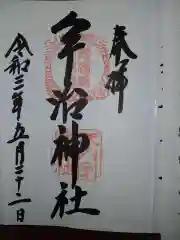 奉拝
宇治神社
令和二年五月二十二日